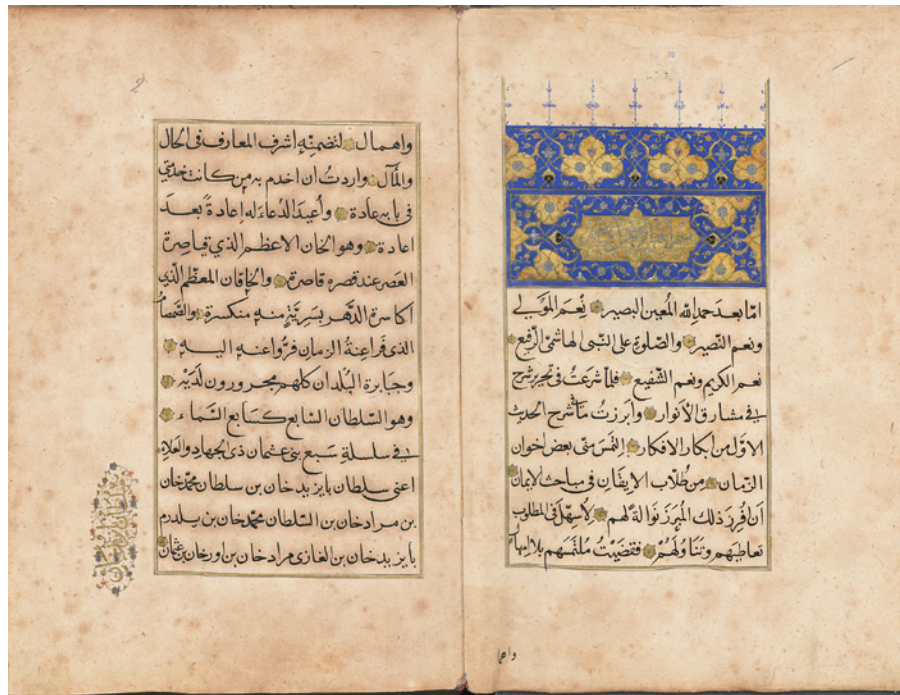 امّا بعد حمد الله المُعين البصير نِعمَ المَولى
ونعم النّصير والصّلوة على النّبى الهاشمىّ الرّفيع
نعم الكريم ونعم الشّفيع فلمّا شرعتُ فى تحرير شرح
فى مشارق الأنوار وأبرزتُ شرح الحديث
الاوّل من ابكار الافكار التمسَ منّى بعض اخوان
الزّمان من طُلّاب الايقان فى مباحث الايمان
أن أفرِزَ ذلك المُبرَز نوالةً لهم لأسهّل فى المطلوب
تعاطيَهم وتَناوُلَهُم فقضيتُ مُلتمَسهم بلا إمهال
واها
واهمال لتضمنِهِ اشرف المعارف فى الحال
والمآل واردتُ ان اخدم به من كانت خدمتى
فى بابه عادة وأُعيدَ الدُعاءَ له إعادةً بعد
اعادة وهو الخان الاعظم الذي قياصرة
العصر عند قصره قاصرة والخاقان المعظّم الّذى
اكاسرة الدّهر بسَريّةٍ منه منكسرة والصّمصام
الذى فراعِنةُ الزمان فرّوا عنه اليه
وجبابرة البُلدان كلهم مجرورون لَدَيْه
وهو السّلطان السّابع كسَابع السّماء
فى سلسلةِ سَبع بنى عثمان ذى الجهاد والعلاء
اعنى سلطان بايزيد خان بن سلطان محمّد خان
بن مراد خان بن السّلطان محمّد خان بن يلدرم
بايزيد خان بن الغازى مراد خان بن اورخان بن عثمان
2